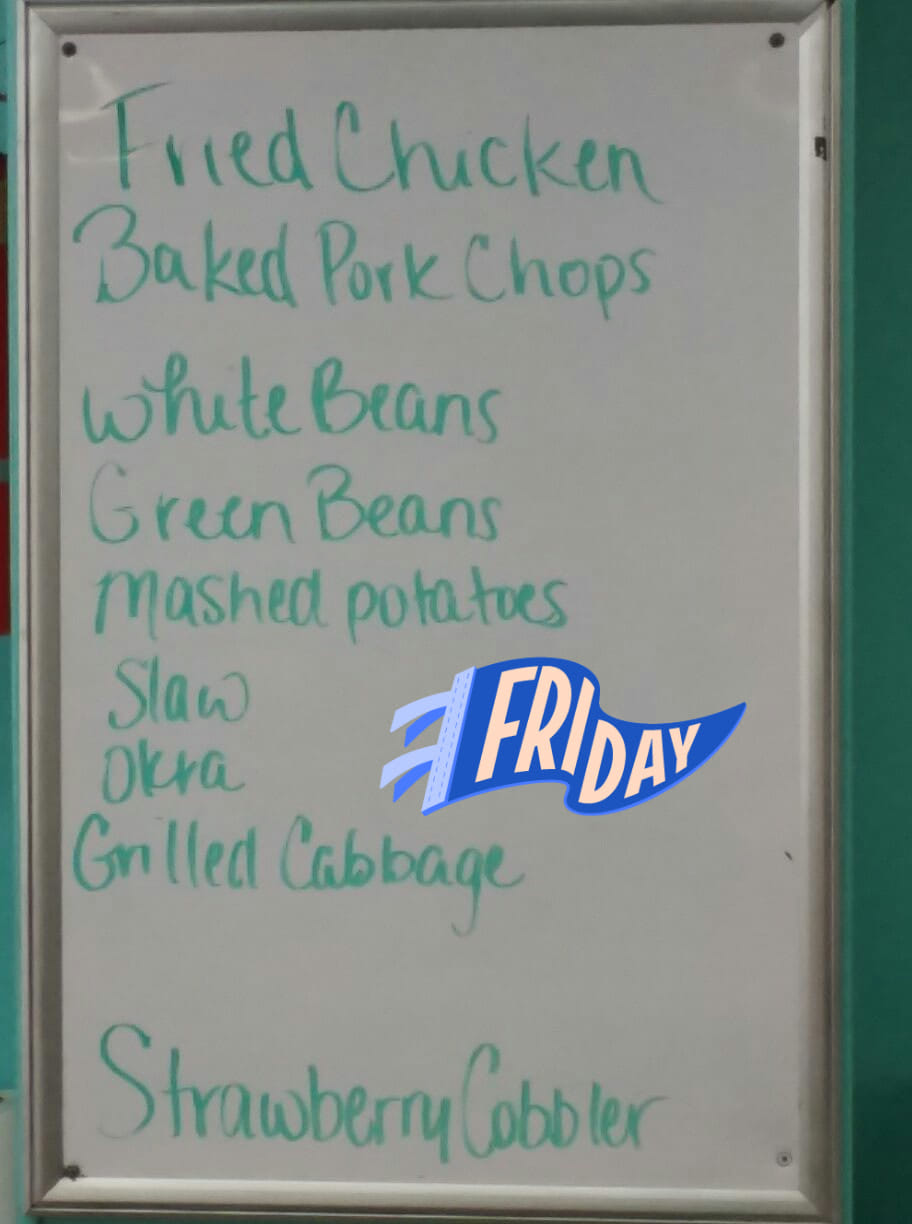 Fried Chicken
Baked Pork Chops
White Beans
Green Beans
Mashed potatoes
Slaw
FRIDAY
Okra
Grilled Cabbage
Strawberry Cobbler